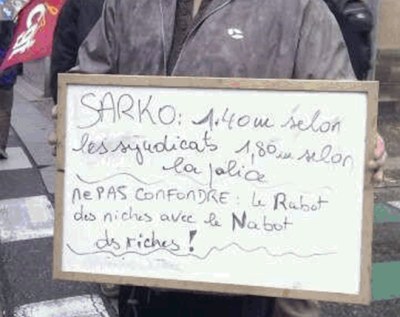 SARKO: 1.40m selon
les syndicats 1,80m selon
la police
NE PAS CONFONDRE : le Rabot
des niches avec le Nabot
ds riches !